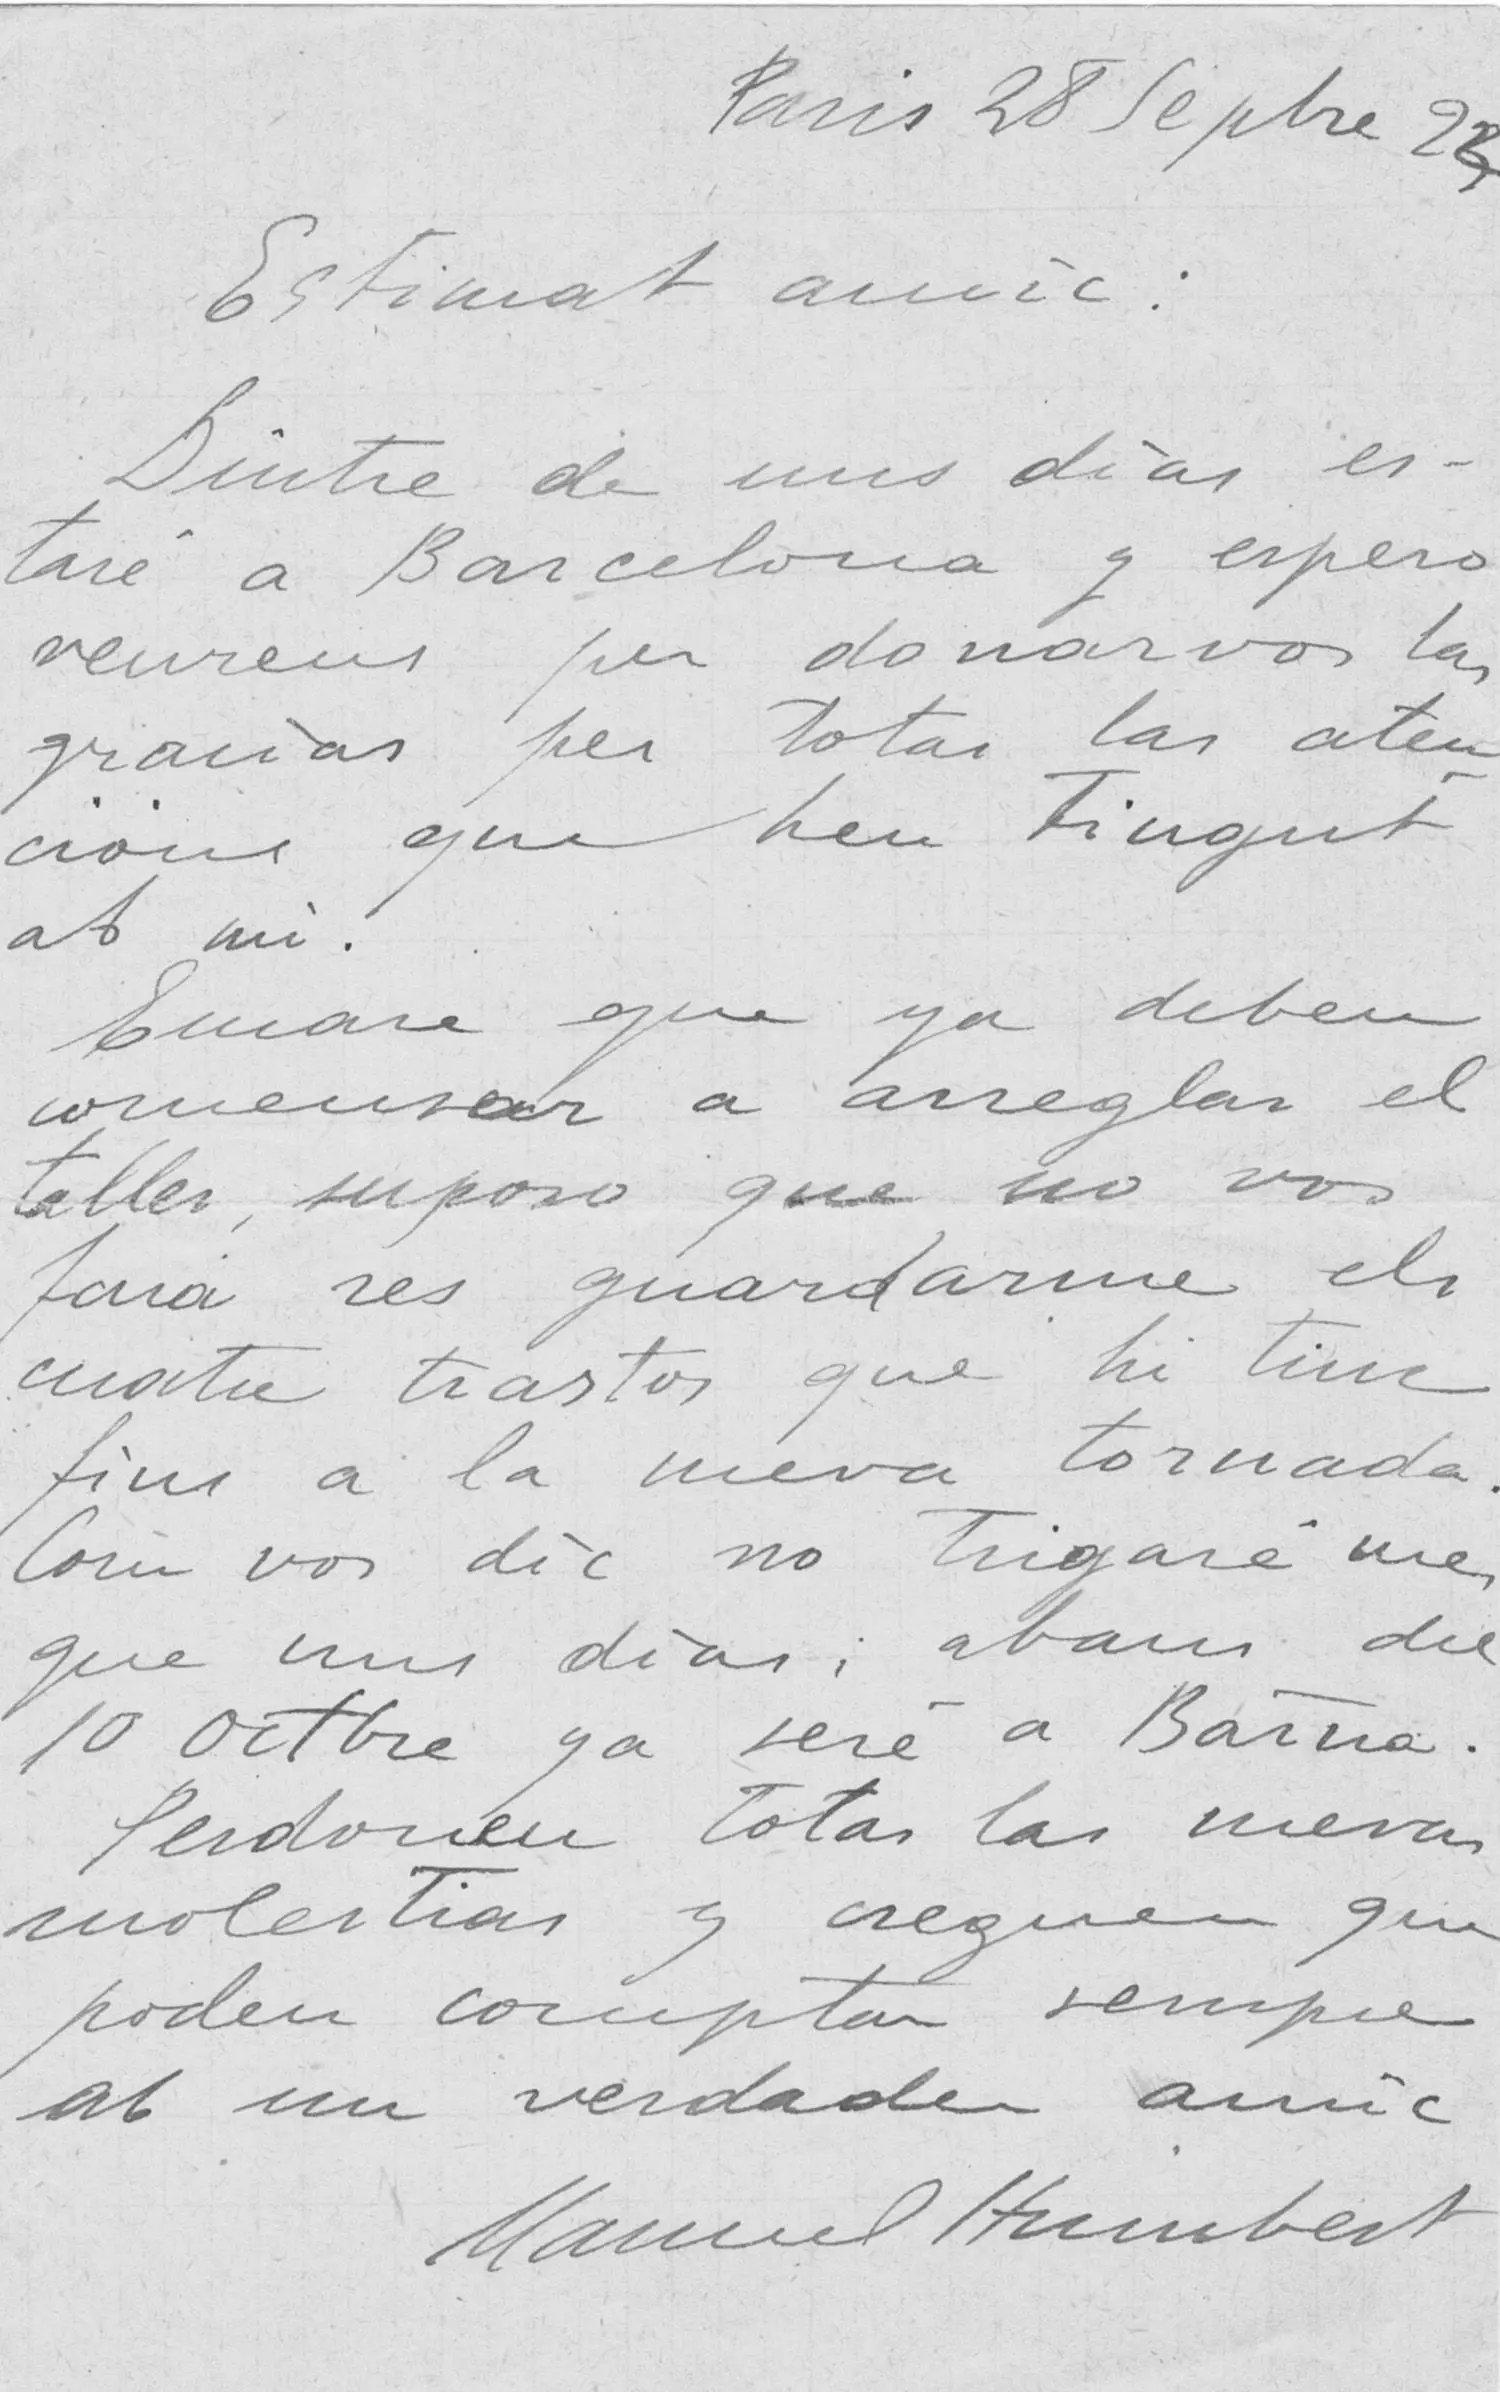 Paris 28 Sepbre
Estimat amic:
Dintre de uns dias es-
taré a Barcelona y espero
veureus per donarvos las
gracias per totas las aten
cions que heu tingut
ab mi.
Encare que ya deben
comensar a arreglar el
taller, suposo que no vos
fará res guardarme els
cuatre trastos que hi tinc
fins a la meva tornada.
Com vos dic no trigaré mes
que uns dias; abans del
10 Octbre ya seré a Barna.
Perdoneu totas las mevas
molestias y cregueu que
podeu comptar sempre
ab un verdader amic
Manuel Humbert